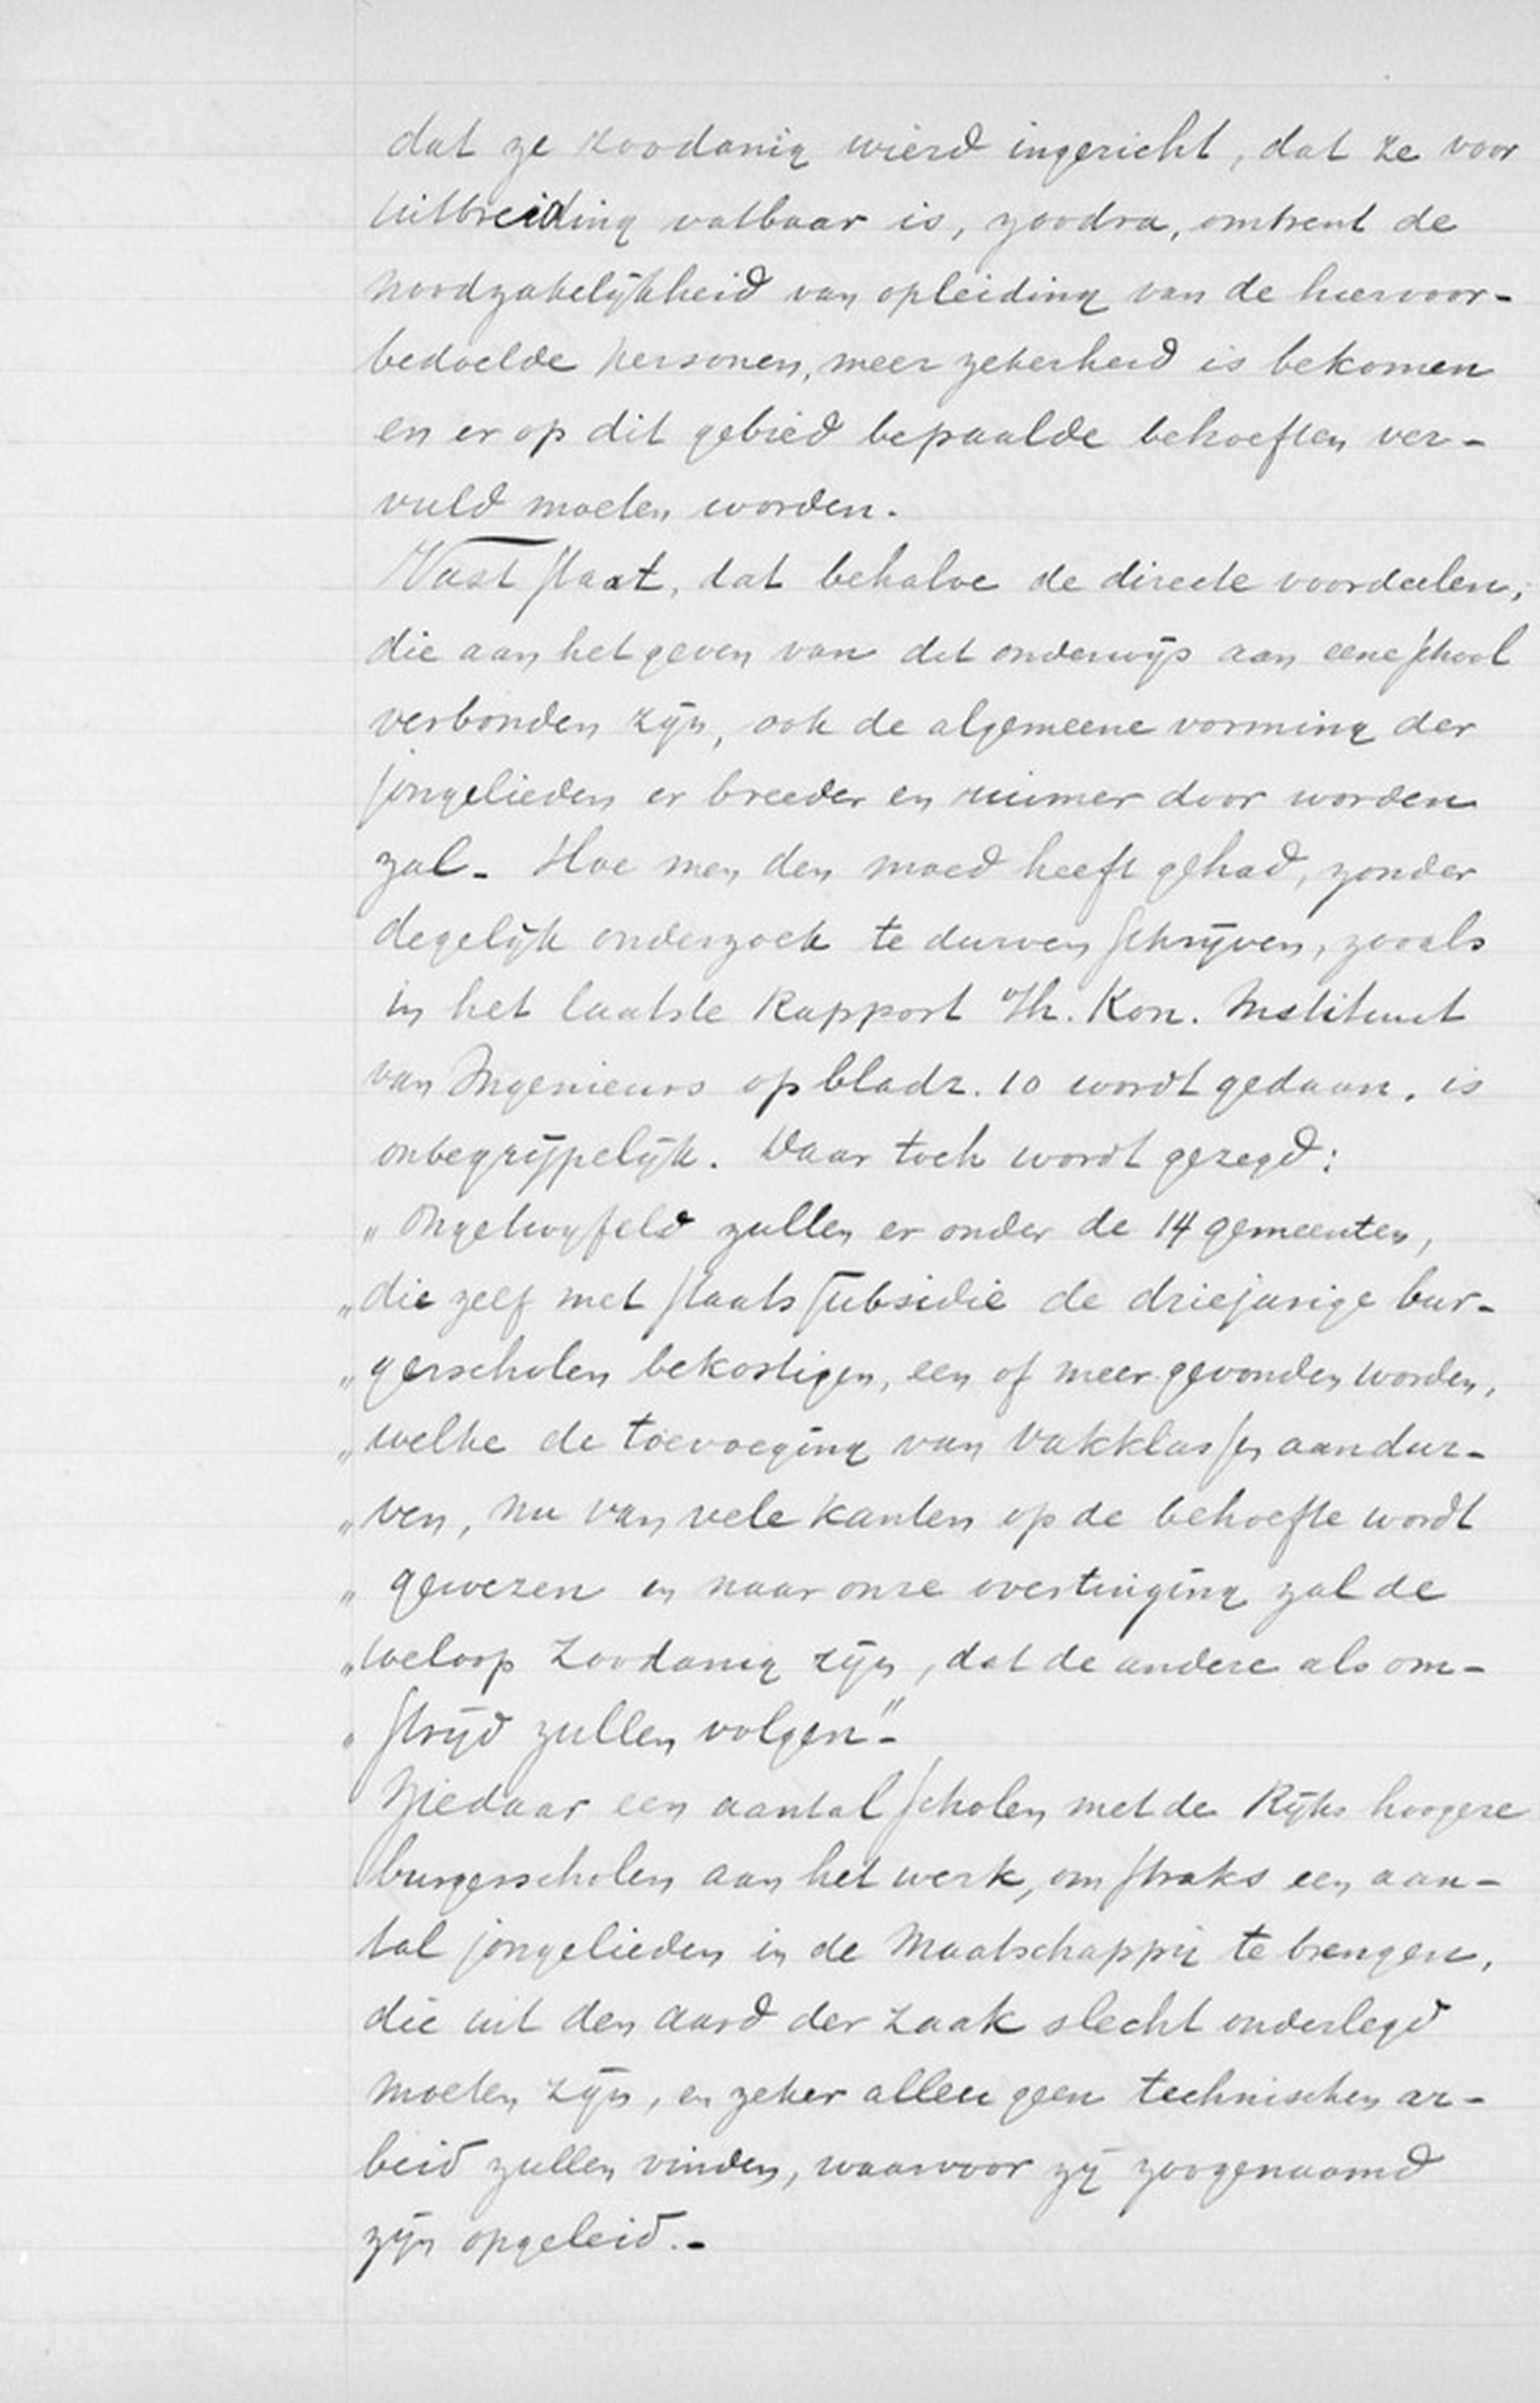 dat ze zoodanig wierd ingericht, dat ze voor
uitbreiding vatbaar is, zoodra, omtrent de
noodzakelijkheid van opleiding van de hiervoor-
bedoelde personen, meer zekerheid is bekomen
en er op dit gebied bepaalde behoeften ver-
vuld moeten worden.
Vast staat, dat behalve de directe voordeelen,
die aan het geven van dit onderwijs aan eene school
verbonden zijn, ook de algemeene vorming der
jongelieden er breeder en ruimer door worden
zal. Hoe men den moed heeft gehad, zonder
degelijk onderzoek te durven schrijven, zooals
in het laatste Rapport v/h. Kon. Instituut
van Ingenieurs op bladz. 10 wordt gedaan, is
onbegrijpelijk. Daar toch wordt gezegd:
„Ongetwyfeld zullen er onder de 14 gemeenten,
„die zelf met staats subsidie de driejarige bur-
„gerscholen bekostigen, een of meer gevonden worden,
„welke de toevoeging van vakklassen aandur-
„ven, nu van vele kanten op de behoefte wordt
„gewezen en naar onze overtuiging zal de
„toeloop zoodanig zijn, dat de andere als om-
„strijd zullen volgen"-
Ziedaar een aantal scholen met de Rijks hoogere
burgerscholen aan het werk, om straks een aan-
tal jongelieden in de Maatschappij te brengen,
die uit den aard der zaak slecht onderlegd
moeten zijn, en zeker allen geen technischen ar-
beid zullen vinden, waarvoor zij zoogenaamd
zijn opgeleid.-